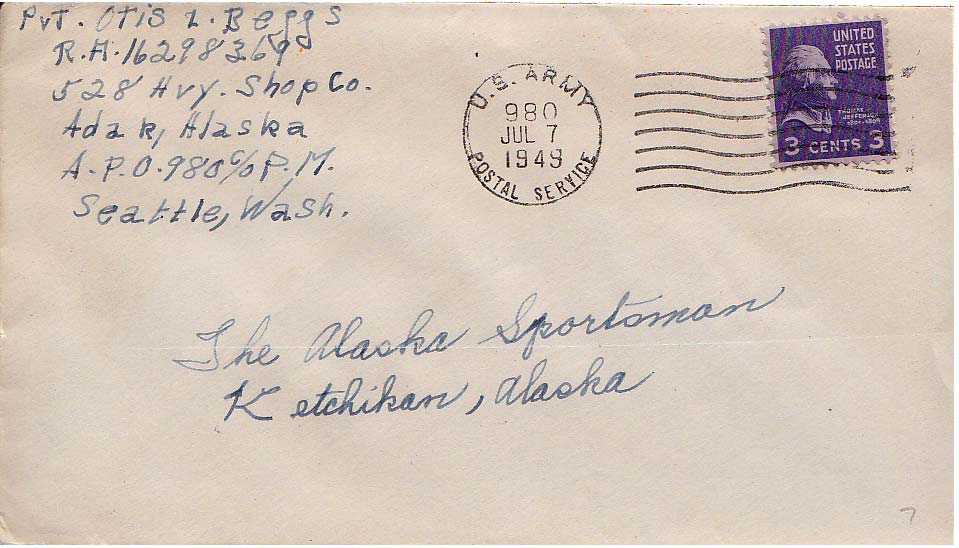 Pvt. Otis L. Beggs
R.A. 16298369
528 Hvy. Shop Co.
Adak, Alaska
A.P.O. 980 c/o P.M.
Seattle, Wash.
U.S. ARMY
980
JUL 7
1949
POSTAL SERVICE
UNITED
STATES
POSTAGE
THOMAS
JEFFERSON
1801-1809
3 CENTS 3
The Alaska Sportsman
Ketchikan, Alaska
7